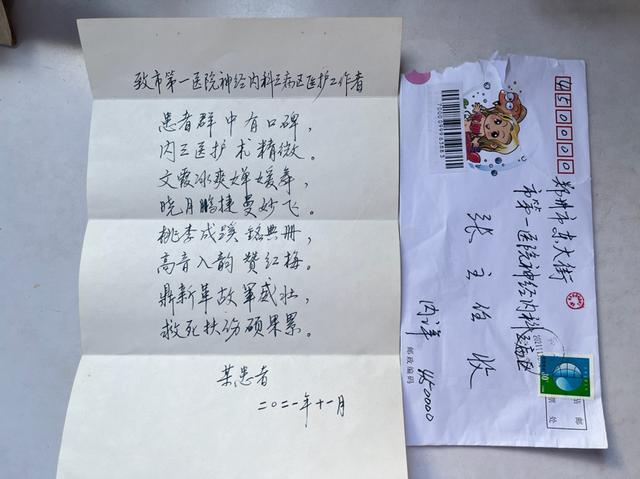 致市第一医院神经内科三病区医护工作者
患者群中有口碑，
内三医护术精微。
文霞冰爽婵媛舞，
晓月鹏捷曼妙飞。
桃李成蹊铭典册，
高音入韵赞红梅。
鼎新革故军威壮，
救死扶伤硕果累。
某患者
二〇二一年十一月
450000
郑州市东大街
市第一医院神经内科三病区
张主任 收
内详
邮政编码 450000